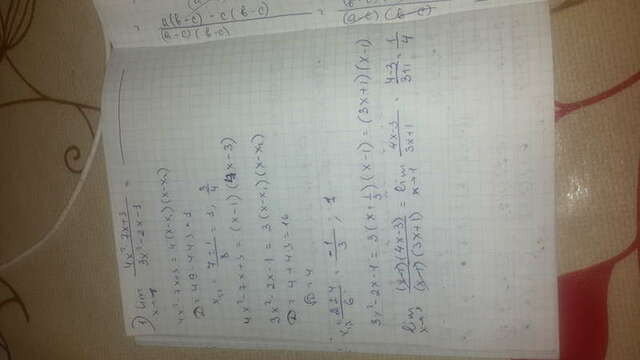 a(b-c) - c(b-c)
(a-c)(b-c)
=
(a-c)(b-c)
1) lim x→1 (4x²-7x+3)/(3x²-2x-1) =
4x²-7x+3 = 4(x-x₁)(x-x₂)
x₁,₂ = (7±1)/8 = 1, 3/4
4x²-7x+3 = (x-1)(4x-3)
3x²-2x-1 = 3(x-x₁)(x-x₂)
D = 4+4·3 = 16
√D = 4
x₁,₂ = (2±4)/6 = -1/3; 1
3x²-2x-1 = 3(x+1/3)(x-1) = (3x+1)(x-1)
lim x→1 (x-1)(4x-3)/(x-1)(3x+1) = lim x→1 (4x-3)/(3x+1) = (4-3)/(3+1) = 1/4